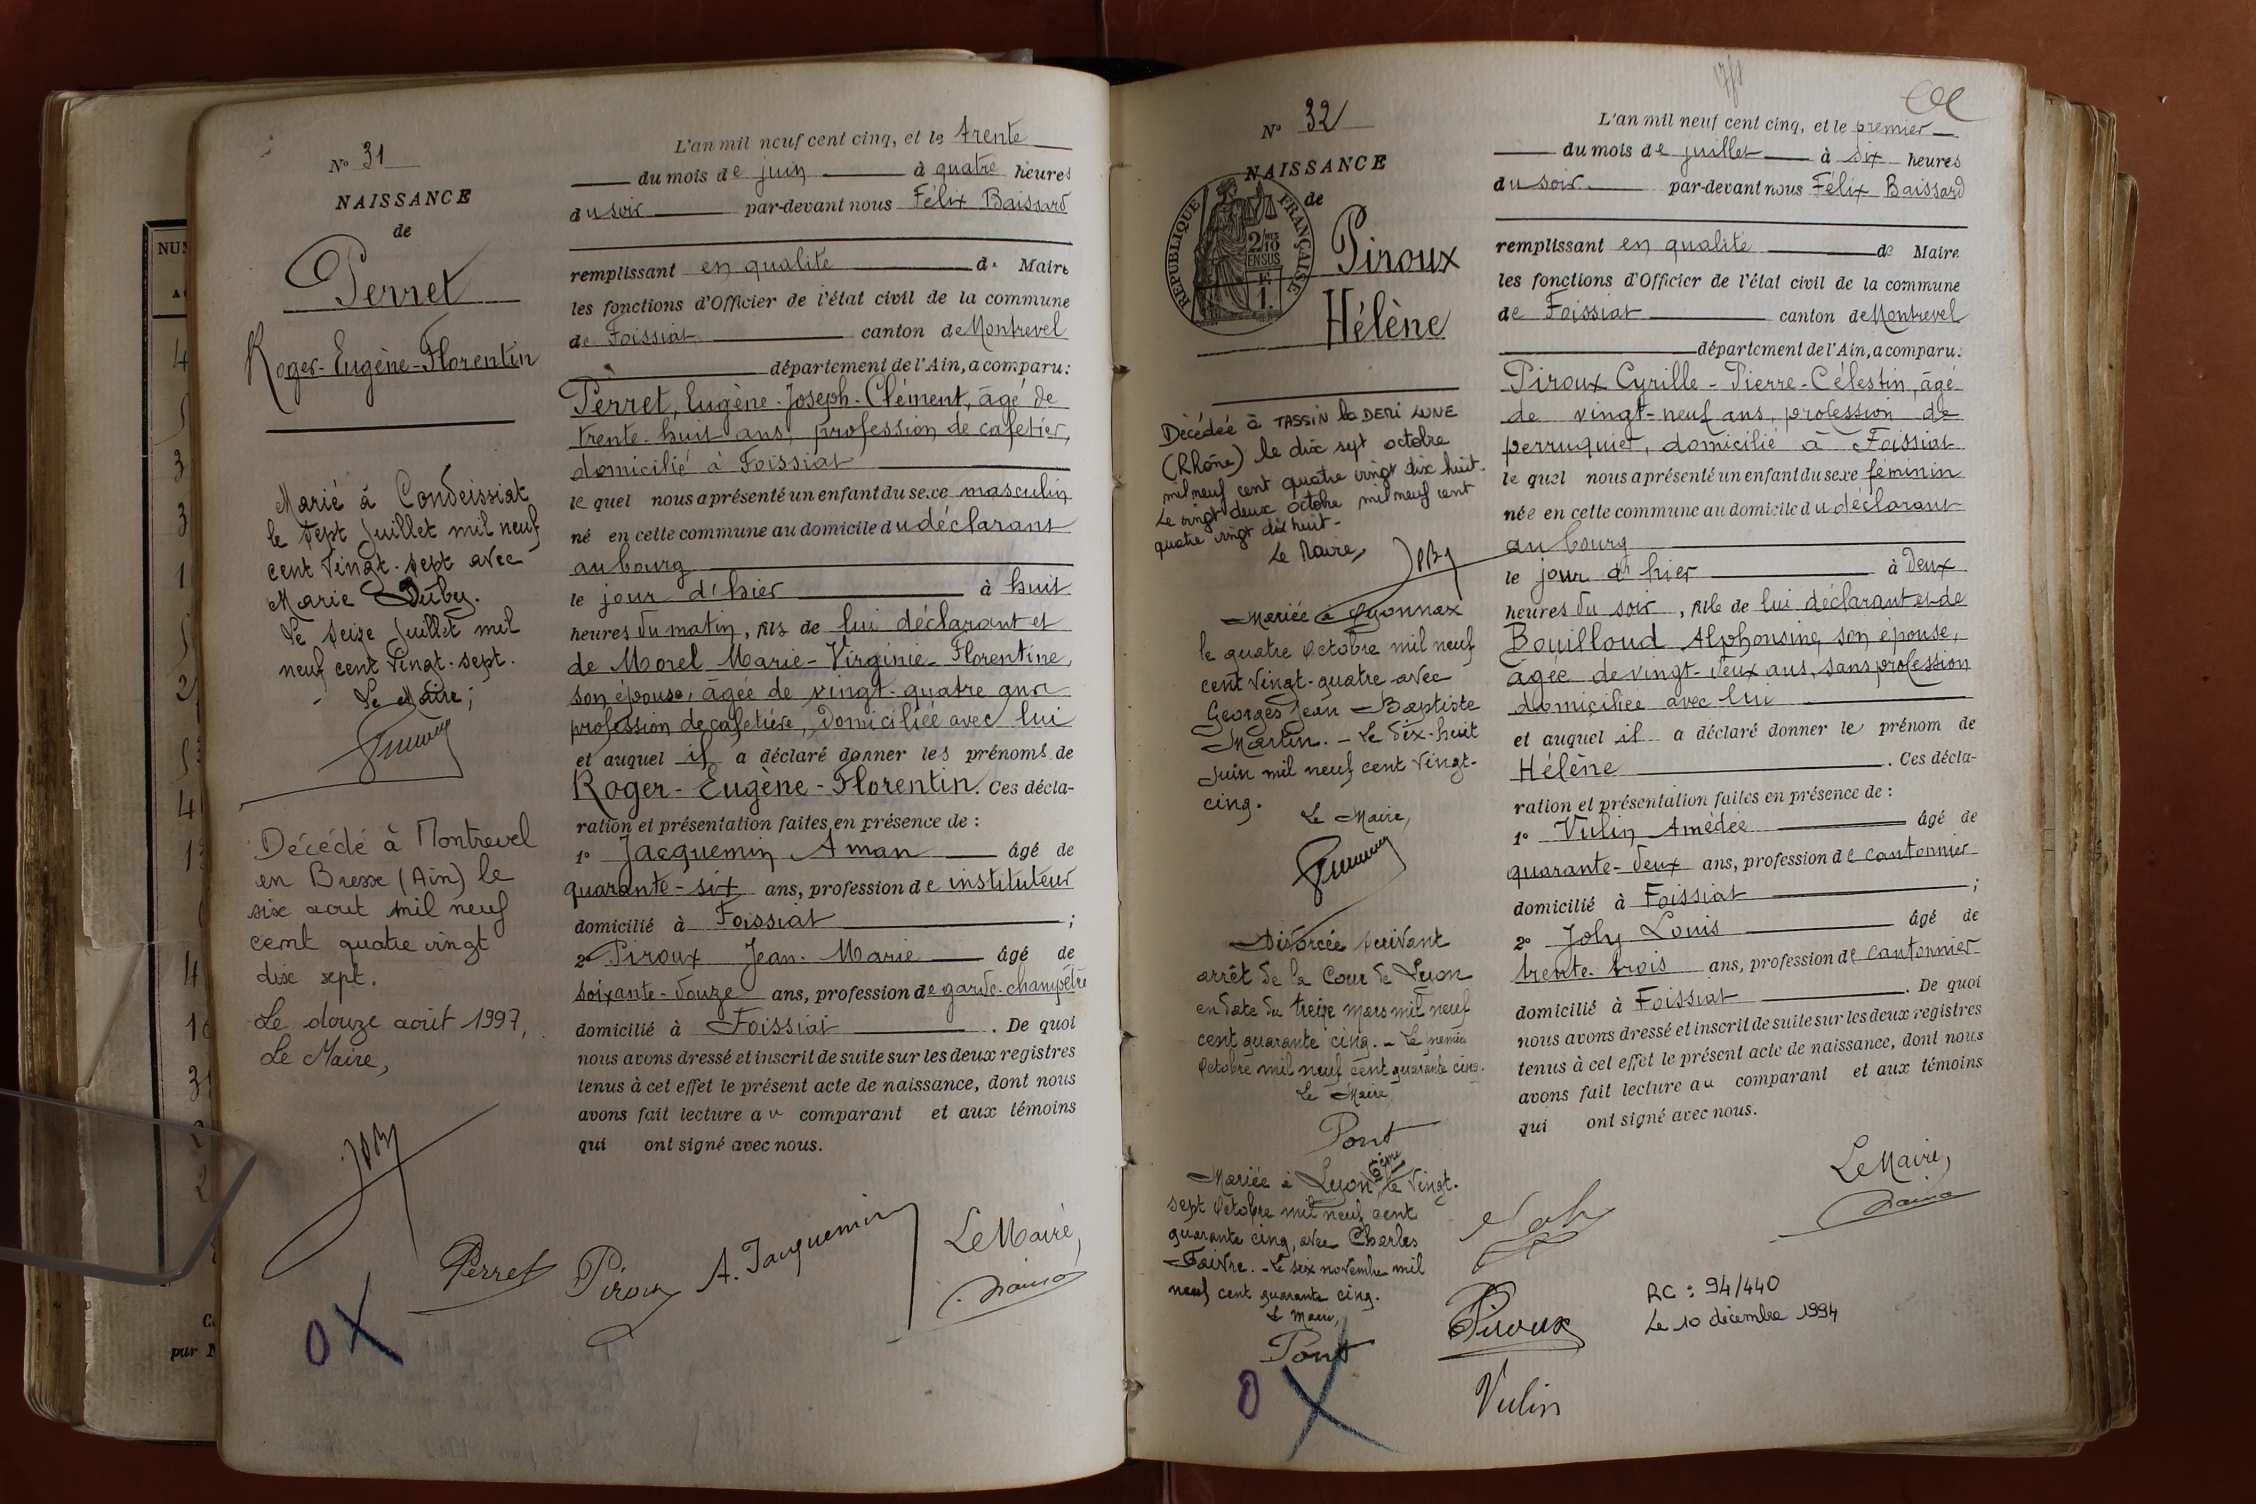 NUM
N° 31
NAISSANCE
de
Perret
Roger-Eugène-Florentin
Marié à Condeissiat
le sept juillet mil neuf
cent vingt-sept avec
Marie Duby.
Le seize juillet mil
neuf cent vingt-sept.
Le Maire;
Décédé à Montrevel
en Bresse (Ain) le
six aout mil neuf
cent quatre vingt
dix sept.
Le douze août 1997,
Le Maire,
L'an mil neuf cent cinq, et le trente
du mois de juin à quatre heures
du soir par-devant nous Félix Baissard
remplissant en qualité de Maire
les fonctions d'Officier de l'état civil de la commune
de Foissiat canton de Montrevel
département de l'Ain, a comparu:
Perret, Eugène-Joseph-Clément, âgé de
trente-huit ans, profession de cafetier,
domicilié à Foissiat
le quel nous a présenté un enfant du sexe masculin
né en cette commune au domicile du déclarant
au bourg
le jour d'hier à huit
heures du matin, fils de lui déclarant et
de Morel Marie-Virginie-Florentine,
son épouse, âgée de vingt-quatre ans
profession de cafetière, domiciliée avec lui
et auquel il a déclaré donner les prénoms de
Roger-Eugène-Florentin. Ces décla-
ration et présentation faites en présence de :
1° Jacquemin Aman âgé de
quarante-six ans, profession de instituteur
domicilié à Foissiat ;
2° Piroux Jean-Marie âgé de
soixante-douze ans, profession de garde-champêtre
domicilié à Foissiat . De quoi
nous avons dressé et inscrit de suite sur les deux registres
tenus à cet effet le présent acte de naissance, dont nous
avons fait lecture au comparant et aux témoins
qui ont signé avec nous.
Perret Piroux A. Jacquemin Le Maire,
O X
N° 32
NAISSANCE
de
RÉPUBLIQUE FRANÇAISE
2/10
EN SUS
Piroux
Hélène
Décédée à TASSIN la DEMI LUNE
(Rhône) le dix sept octobre
mil neuf cent quatre vingt dix huit.
Le vingt deux octobre mil neuf cent
quatre vingt dix huit-
Le Maire,
Mariée à Oyonnax
le quatre Octobre mil neuf
cent vingt-quatre avec
Georges Jean Baptiste
Martin. - Le dix-huit
Juin mil neuf cent vingt-
cinq.
Le Maire,
Divorcée suivant
arrêt de la Cour de Lyon
en date du treize mars mil neuf
cent quarante cinq. - Le premier
Octobre mil neuf cent quarante cinq.
Le Maire
Pont
Mariée à Lyon 6ème, le vingt-
sept Octobre mil neuf cent
quarante cinq, avec Charles
Faivre. - Le six novembre mil
neuf cent quarante cinq.
Le Maire,
Pont
O X
L'an mil neuf cent cinq, et le premier
du mois de juillet à six heures
du soir par-devant nous Félix Baissard
remplissant en qualité de Maire
les fonctions d'Officier de l'état civil de la commune
de Foissiat canton de Montrevel
département de l'Ain, a comparu:
Piroux Cyrille-Pierre-Célestin, âgé
de vingt-neuf ans, profession de
perruquier, domicilié à Foissiat
le quel nous a présenté un enfant du sexe féminin
née en cette commune au domicile du déclarant
au bourg
le jour d'hier à deux
heures du soir, fille de lui déclarant et de
Bouilloud Alphonsine, son épouse,
âgée de vingt-deux ans, sans profession
domiciliée avec lui
et auquel il a déclaré donner le prénom de
Hélène . Ces décla-
ration et présentation faites en présence de :
1° Vulin Amédée âgé de
quarante-deux ans, profession de cantonnier
domicilié à Foissiat ;
2° Joly Louis âgé de
trente-trois ans, profession de cantonnier
domicilié à Foissiat . De quoi
nous avons dressé et inscrit de suite sur les deux registres
tenus à cet effet le présent acte de naissance, dont nous
avons fait lecture au comparant et aux témoins
qui ont signé avec nous.
Le Maire,
Joly
Piroux
Vulin
RC : 94/440
Le 10 décembre 1994